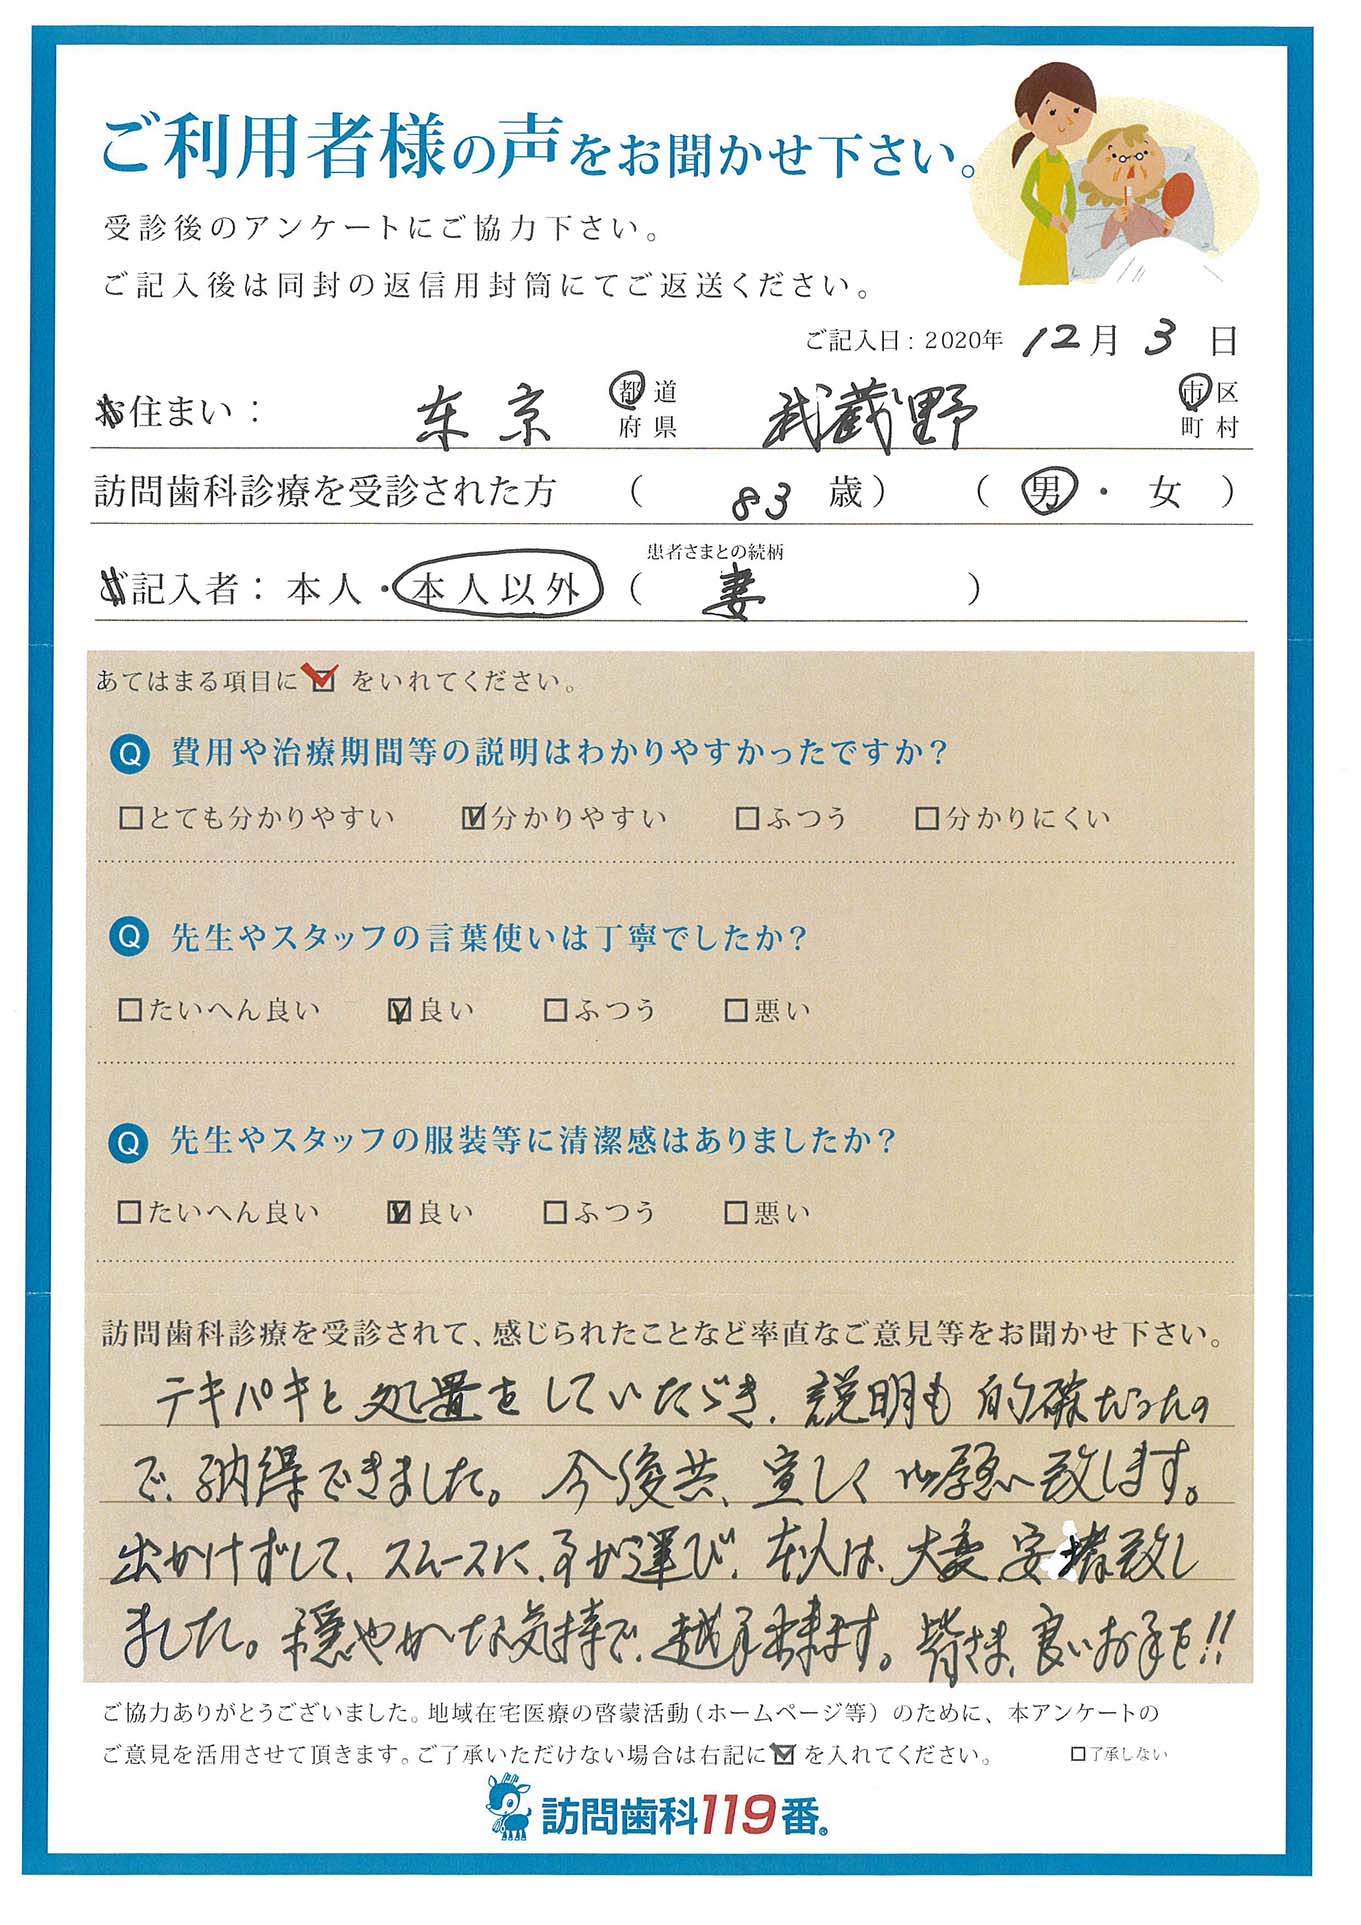 ご利用者様の声をお聞かせ下さい。
受診後のアンケートにご協力下さい。
ご記入後は同封の返信用封筒にてご返送ください。
ご記入日：2020年 12月 3 日
お住まい： 东京 都道府県 武蔵野 市区町村
訪問歯科診療を受診された方 （ 83 歳） （ 男・女 ）
患者さまとの続柄
ご記入者： 本人・本人以外 （ 妻 ）
あてはまる項目に ☑ をいれてください。
Q 費用や治療期間等の説明はわかりやすかったですか？
□とても分かりやすい ☑分かりやすい □ふつう □分かりにくい
Q 先生やスタッフの言葉使いは丁寧でしたか？
□たいへん良い ☑良い □ふつう □悪い
Q 先生やスタッフの服装等に清潔感はありましたか？
□たいへん良い ☑良い □ふつう □悪い
訪問歯科診療を受診されて、感じられたことなど率直なご意見等をお聞かせ下さい。
テキパキと処置をしていただき、説明も的確だったの
で、納得できました。今後共、宜しく御願い致します。
出かけずして、スムースに、事が運び、本人は、大変安堵致し
ました。穏やかな気持で、越年出来ます。皆さま、良いお年を!!
ご協力ありがとうございました。地域在宅医療の啓蒙活動（ホームページ等）のために、本アンケートの
ご意見を活用させて頂きます。ご了承いただけない場合は右記に☑を入れてください。 □了承しない
訪問歯科119番®